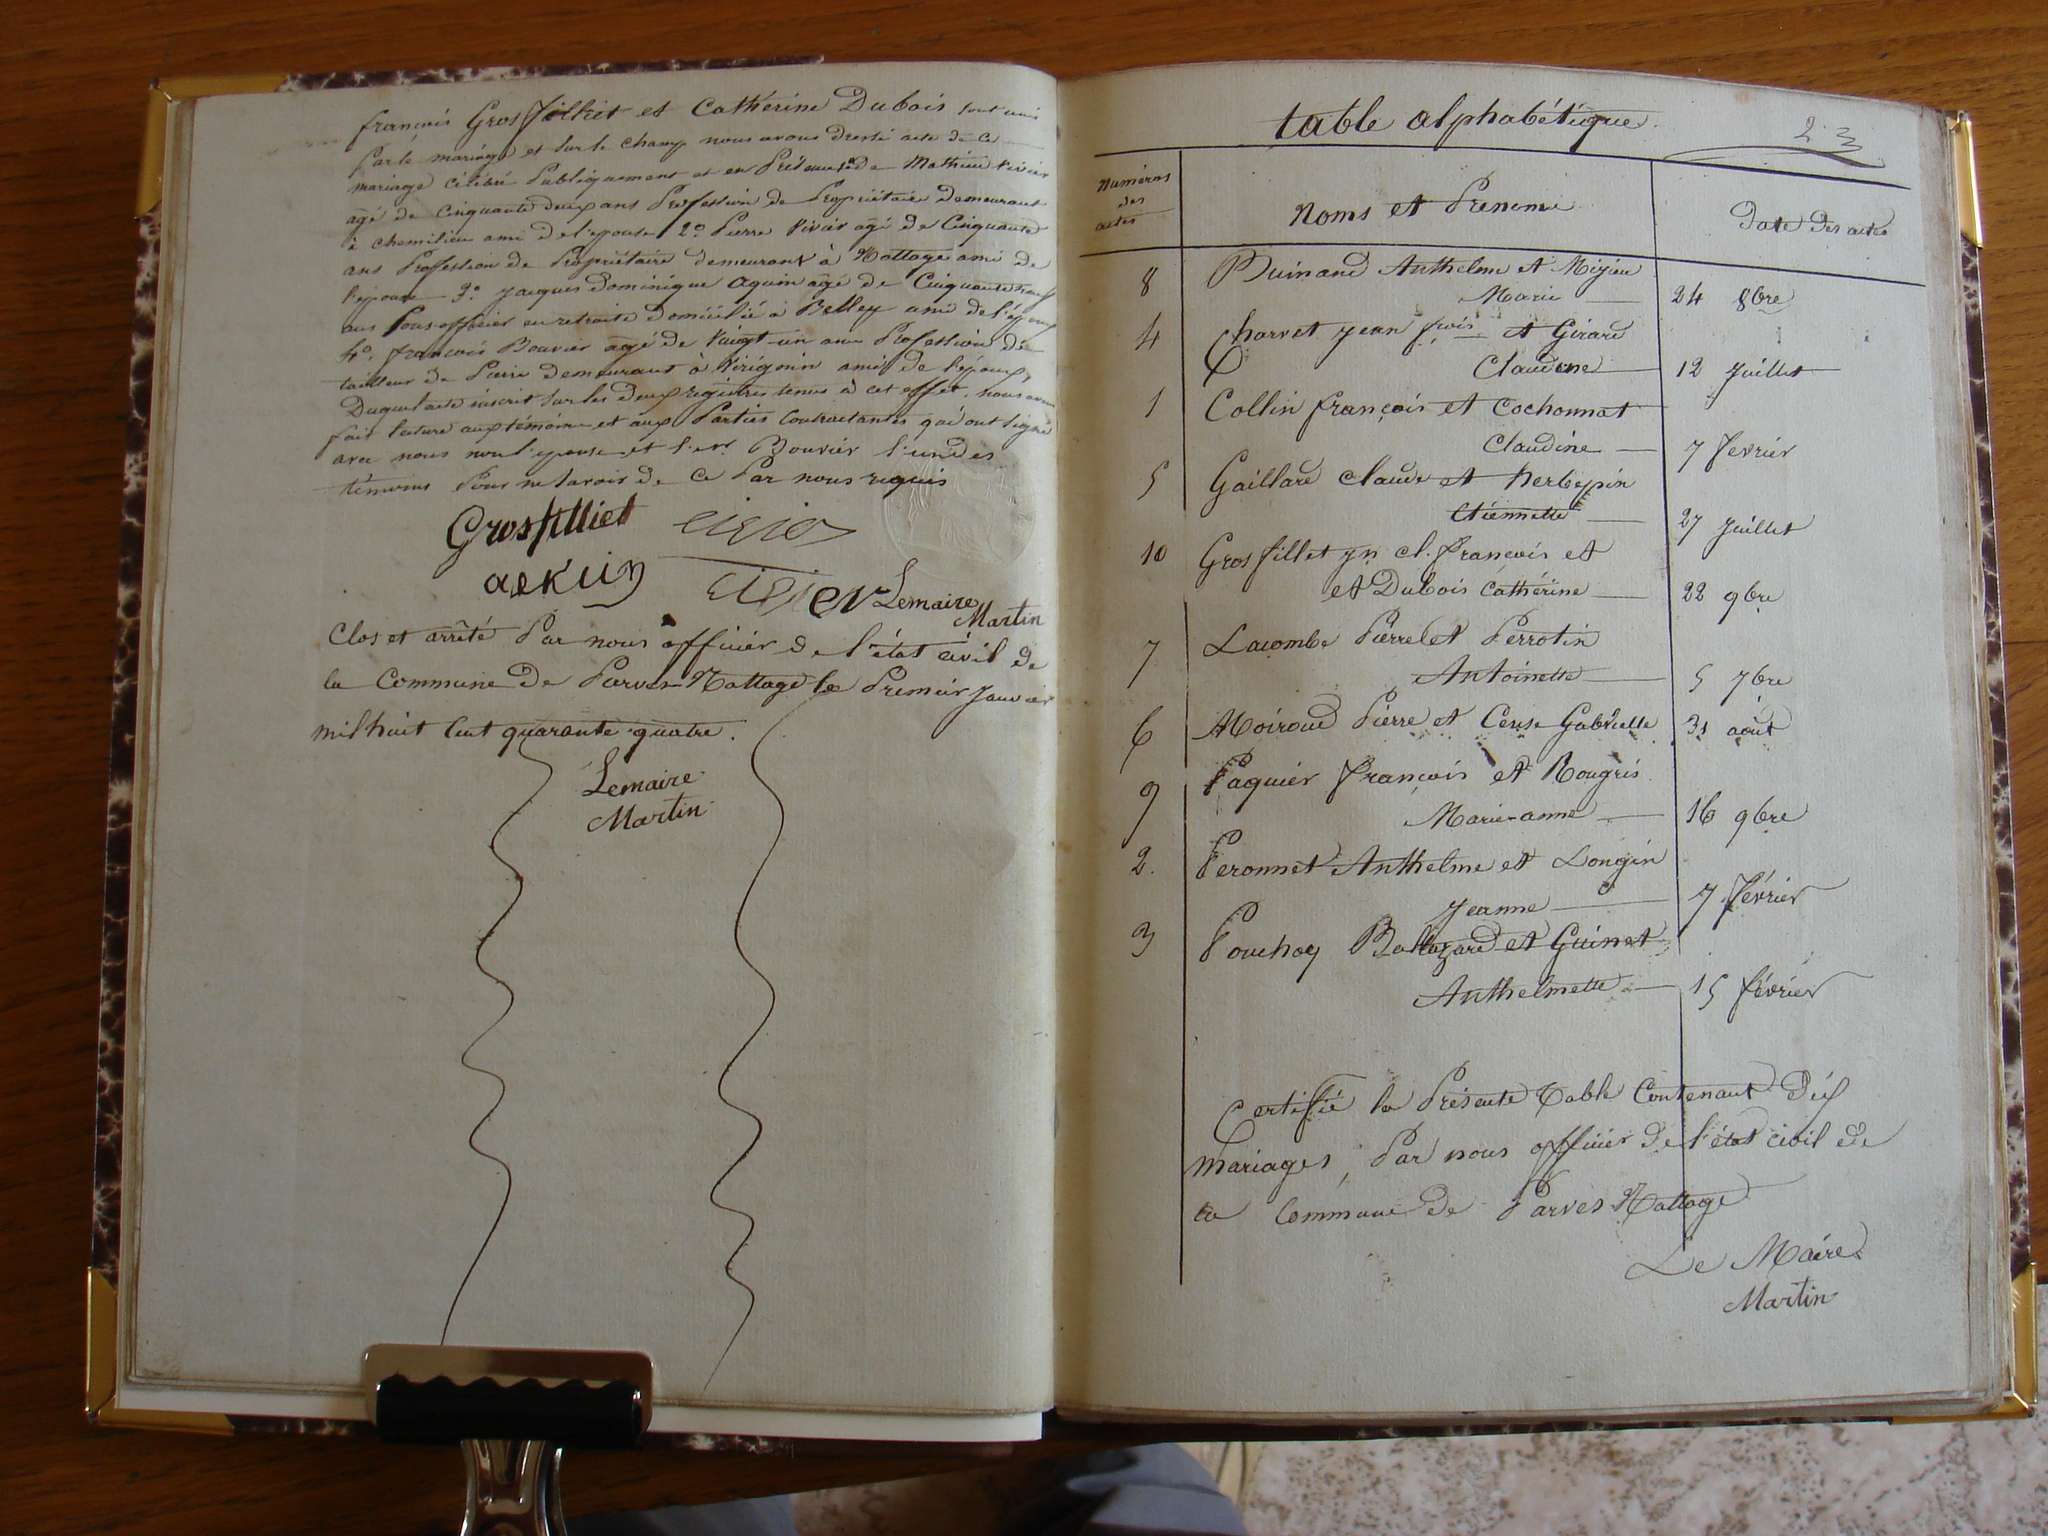 françois Grosfilliet et Cathérine Dubois sont unis
par le mariage et sur le champ nous avons dressé acte de ce
mariage célébré Publiquement et en Présence de Mathieu Vivier
agé de Cinquante deux ans Profession de Propriétaire demeurant
à chemilieu ami de l'epouse 2º Pierre Vivier agé de Cinquante
ans Profession de Propriétaire demeurant à Nattage ami de
l'epouse 3º jacques dominique aquin agé de Cinquante neuf
ans Sous-officier en retraite domicilié à Belley ami de l'époux
4º françois Bouvier agé de Vingt-un ans Profession de
tailleur de Pierre demeurant à Virignin ami de l'époux,
Duquel acte inscrit sur les deux registres tenus à cet effet, nous avons
fait lecture aux témoins et aux Parties Contractantes qui ont signé
avec nous non l'epouse et l. Bouvier l'un des
témoins Pour ne savoir de ce Par nous requis
Grosfilliet vivier
aekuin vivier Lemaire
Martin
Clos et arrêté Par nous officier de l'état civil de
la Commune de Parves-Nattage le Premier Janvier
mil huit Cent quarante quatre.
Lemaire
Martin
table alphabétique.
23
Numéros
des
actes
Noms et Prenoms
Date des actes
8 Buinand Anthelme et Migieu
Marie 24 8bre
4 Charvet jean fçois et Girard
Claudine 12 Juillet
1 Collin françois et Cochonnat
Claudine 7 fevrier
5 Gaillard Claude et Herbepin
Etiennette 27 Juillet
10 Grosfillet jn cl. françois et
et Dubois Cathérine 22 9bre
7 Lacombe Pierre et Perrotin
Antoinette 5 7bre
6 Moiroud Pierre et Cense Gabrielle 31 août
9 Paquier françois et Rougris
Marie-anne 16 9bre
2. Peronnet Anthelme et Longin
Jeanne 7 février
3 Pouchoy Baltazard et Guinet
Anthelmette 15 février
Certifié la Présente Table Contenant Dix
mariages, Par nous officier de l'état civil de
la Commune de Parves Nattage
Le Maire
Martin